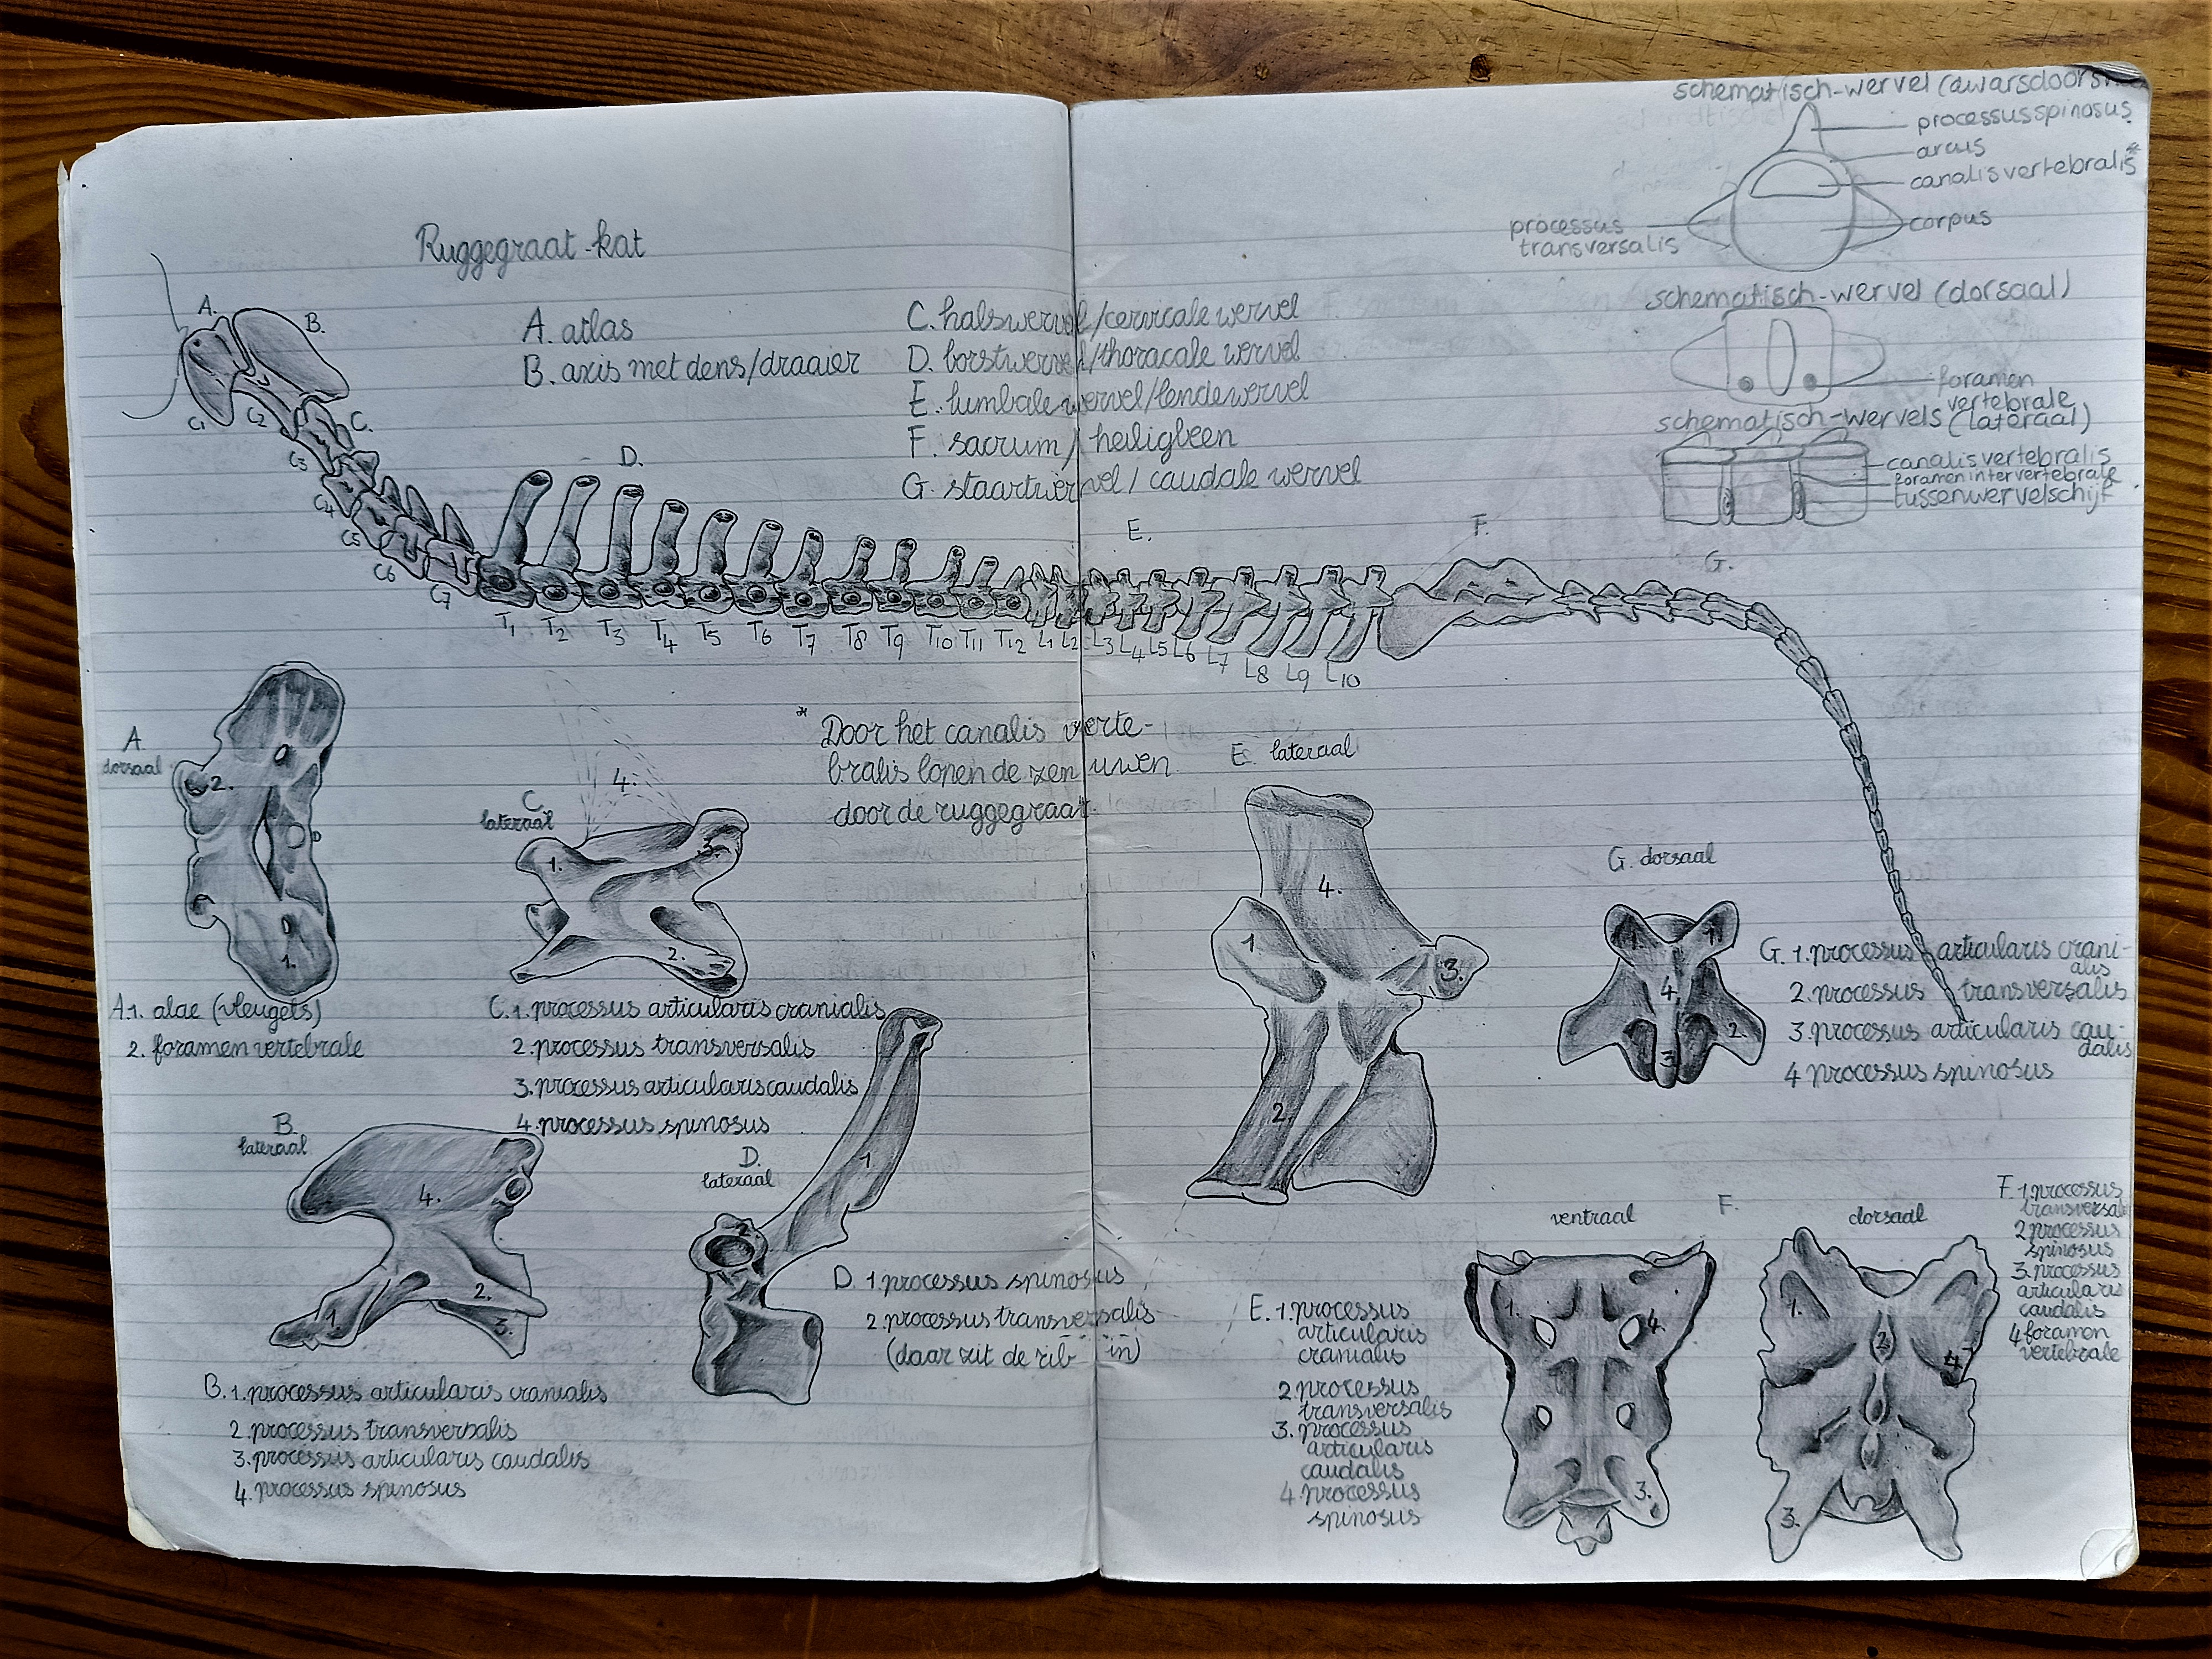 schematisch-wervel (dwarsdoorsn
processus spinosus
arcus
canalis vertebralis*
corpus
processus
transversalis
Ruggegraat-kat
A. atlas
B. axis met dens/draaier
C. halswervel/cervicale wervel
D. borstwervel/thoracale wervel
E. lumbale wervel/lendewervel
F. sacrum/heiligbeen
G. staartwervel/caudale wervel
schematisch-wervel (dorsaal)
foramen
vertebrale
schematisch-wervels (lateraal)
canalis vertebralis
foramen intervertebrale
tussenwervelschijf
A.
B.
C.
D.
E.
F.
G.
C1
C2
C3
C4
C5
C6
C7
T1 T2 T3 T4 T5 T6 T7 T8 T9 T10 T11 T12 L1 L2 L3 L4 L5 L6 L7 L8 L9 L10
* Door het canalis verte-
bralis lopen de zenuwen
door de ruggegraat.
A
dorsaal
2.
1.
A.1. alae (vleugels)
2. foramen vertebrale
C.
lateraal
4.
1.
3.
2.
C.1. processus articularis cranialis
2. processus transversalis
3. processus articularis caudalis
4. processus spinosus
B.
lateraal
4.
2.
1.
3.
B.1. processus articularis cranialis
2. processus transversalis
3. processus articularis caudalis
4. processus spinosus
D.
lateraal
1
2
D. 1 processus spinosus
2. processus transversalis
(daar zit de rib in)
E. lateraal
4.
1
3.
2.
E. 1 processus
articularis
cranialis
2 processus
transversalis
3. processus
articularis
caudalis
4 processus
spinosus
G. dorsaal
1. 1
4.
2.
3
G. 1. processus articularis crani-
alis
2. processus transversalis
3. processus articularis cau-
dalis
4 processus spinosus
F.
ventraal
1.
4.
3.
dorsaal
1.
2
4
3.
F. 1 processus
transversal
2 processus
spinosus
3. processus
articularis
caudalis
4 foramen
vertebrale